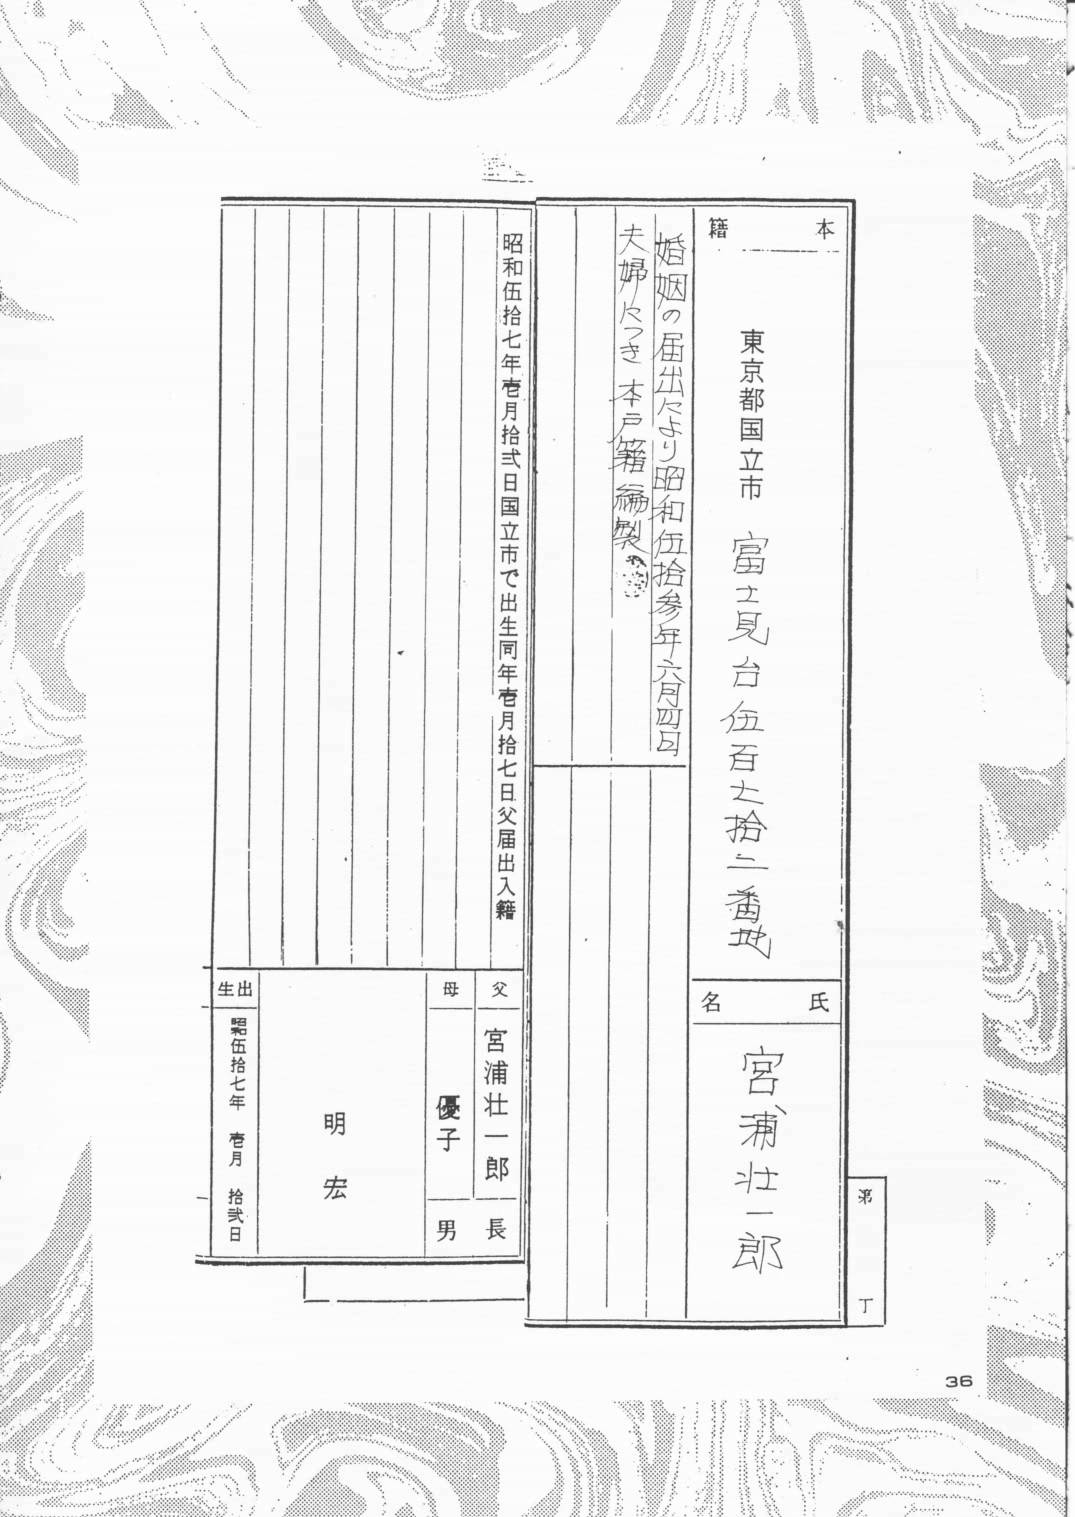 本籍
東京都国立市 富士見台伍百七拾二番地
氏名
宮浦壮一郎
婚姻の届出により昭和伍拾参年六月四日
夫婦につき本戸籍編製
第 丁
昭和伍拾七年壱月拾弐日国立市で出生同年壱月拾七日父届出入籍
父
宮浦壮一郎
母
優子
長男
明宏
出生
昭伍拾七年 壱月 拾弐日
36